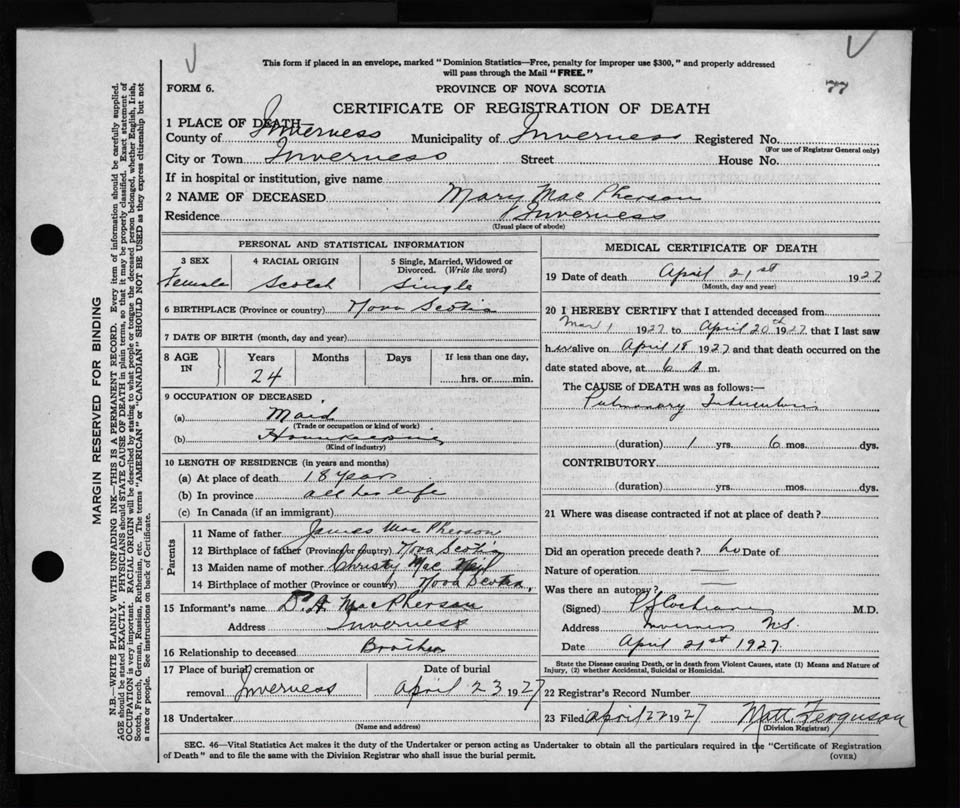 This form if placed in an envelope, marked "Dominion Statistics—Free, penalty for improper use $300," and properly addressed
will pass through the Mail "FREE."
77
FORM 6. PROVINCE OF NOVA SCOTIA
CERTIFICATE OF REGISTRATION OF DEATH
1 PLACE OF DEATH—
County of Inverness Municipality of Inverness Registered No.
(For use of Registrar General only)
City or Town Inverness Street House No.
If in hospital or institution, give name
2 NAME OF DECEASED Mary MacPherson
Residence Inverness
(Usual place of abode)
PERSONAL AND STATISTICAL INFORMATION
3 SEX 4 RACIAL ORIGIN 5 Single, Married, Widowed or
Divorced. (Write the word)
Female Scotch Single
6 BIRTHPLACE (Province or country) Nova Scotia
7 DATE OF BIRTH (month, day and year)
8 AGE IN Years Months Days If less than one day,
24 hrs. or min.
9 OCCUPATION OF DECEASED
(a) Maid
(Trade or occupation or kind of work)
(b) Housekeeping
(Kind of industry)
10 LENGTH OF RESIDENCE (in years and months)
(a) At place of death 18 years
(b) In province all her life
(c) In Canada (if an immigrant)
Parents
11 Name of father James MacPherson
12 Birthplace of father (Province or country) Nova Scotia
13 Maiden name of mother Christy Mac Neil
14 Birthplace of mother (Province or country) Nova Scotia
15 Informant's name D. A. MacPherson
Address Inverness
16 Relationship to deceased Brother
17 Place of burial, cremation or Date of burial
removal Inverness April 23 1927
18 Undertaker
(Name and address)
MEDICAL CERTIFICATE OF DEATH
19 Date of death April 21st 1927
(Month, day and year)
20 I HEREBY CERTIFY that I attended deceased from
Mar 1 1927 to April 20th 1927 that I last saw
her alive on April 18 1927 and that death occurred on the
date stated above, at 6 A m.
The CAUSE of DEATH was as follows:—
Pulmonary Tuberculosis
(duration) 1 yrs. 6 mos. dys.
CONTRIBUTORY
(duration) yrs. mos. dys.
21 Where was disease contracted if not at place of death?
Did an operation precede death? no Date of
Nature of operation —
Was there an autopsy? —
(Signed) Cochrane M.D.
Address Inverness N.S.
Date April 21st 1927
State the Disease causing Death, or in death from Violent Causes, state (1) Means and Nature of
Injury, (2) whether Accidental, Suicidal or Homicidal.
22 Registrar's Record Number
23 Filed April 22 1927 Matt. Ferguson
(Division Registrar)
SEC. 46—Vital Statistics Act makes it the duty of the Undertaker or person acting as Undertaker to obtain all the particulars required in the "Certificate of Registration
of Death" and to file the same with the Division Registrar who shall issue the burial permit. (OVER)
MARGIN RESERVED FOR BINDING
N.B.—WRITE PLAINLY WITH UNFADING INK—THIS IS A PERMANENT RECORD. Every item of information should be carefully supplied.
AGE should be stated EXACTLY. PHYSICIANS should STATE CAUSE OF DEATH in plain terms, so that it may be properly classified. Exact statement of
OCCUPATION is very important. RACIAL ORIGIN will be described by stating to what people or tongue the deceased person belonged, whether English, Irish,
Scotch, French, German, Russian, Ruthenian, etc. The terms "AMERICAN" or "CANADIAN" SHOULD NOT BE USED as they express citizenship but not
a race or people. See instructions on back of Certificate.